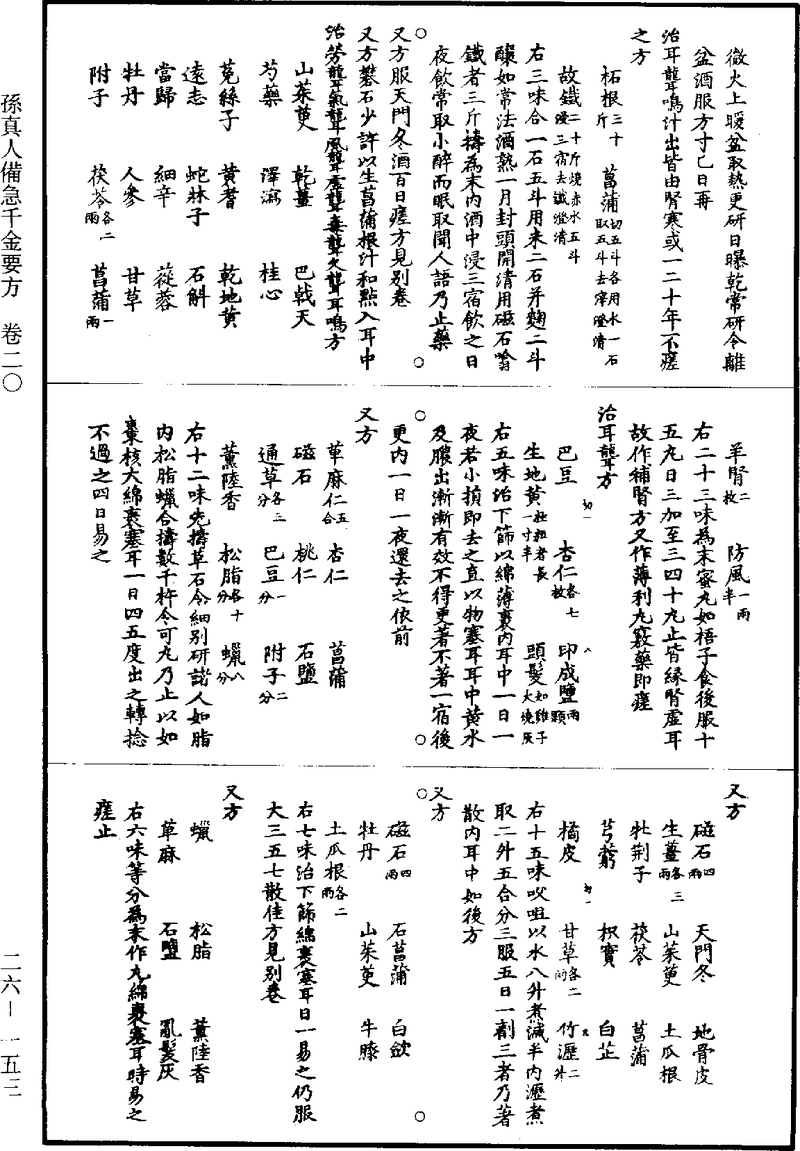 微火上暖盆取熱更研日曝乾常研令離
盆酒服方寸匕日再
治耳聾鳴汁出皆由腎寒或一二十年不瘥
之方
柘根三十斤 菖蒲切五斗各用水一石取五斗去滓澄清
故鐵二十斤燒赤水五斗浸三宿去鐵澄清
右三味合一石五斗用米二石并麴二斗
釀如常法酒熟一月封頭開清用磁石吸
鐵者三斤擣為末內酒中浸三宿飲之日
夜飲常取小醉而眠取聞人語乃止藥
又方服天門冬酒百日瘥方見別卷
又方礬石少許以生菖蒲根汁和點入耳中
治勞聾氣聾風聾虛聾毒聾久聾耳鳴方
山茱萸 乾薑 巴戟天
芍藥 澤瀉 桂心
菟絲子 黃耆 乾地黃
遠志 蛇牀子 石斛
當歸 細辛 蓯蓉
牡丹 人參 甘草
附子 茯苓各二兩 菖蒲一兩
羊腎二枚 防風一兩半
右二十三味為末蜜丸如梧子食後服十
五丸日三加至三四十丸止皆緣腎虛耳
故作補腎方又作薄利九竅藥即瘥
治耳聾方
巴豆 杏仁各七枚 印成鹽兩顆
生地黃極粗者長一寸半 頭髮如雞子大燒灰
右五味治下篩以綿薄裹內耳中一日一
夜若小損即去之直以物塞耳耳中黃水
及膿出漸漸有效不得更著不著一宿後
更內一日一夜還去之依前
又方
萆麻仁五合 杏仁 菖蒲
磁石 桃仁 石鹽
通草各三分 巴豆一分 附子二分
薰陸香 松脂各十分 蠟八分
右十二味先擣草石令細別研諸人如脂
內松脂蠟合擣數千杵令可丸乃止以如
棗核大綿裹塞耳一日四五度出之轉捻
不過之四日易之
又方
磁石四兩 天門冬 地骨皮
生薑各三兩 山茱萸 土瓜根
牡荊子 茯苓 菖蒲
芎藭 枳實 白芷
橘皮 甘草各二兩 竹瀝二升
右十五味㕮咀以水八升煮減半內瀝煮
取二升五合分三服五日一劑三者乃著
散內耳中如後方
又方
磁石四兩 石菖蒲 白斂
牡丹 山茱萸 牛膝
土瓜根各二兩
右七味治下篩綿裹塞耳日一易之仍服
大三五七散佳方見別卷
又方
蠟 松脂 薰陸香
萆麻 石鹽 亂髮灰
右六味等分為末作丸綿裹塞耳時易之
瘥止
孫真人備急千金要方 卷二〇
二六—一五三